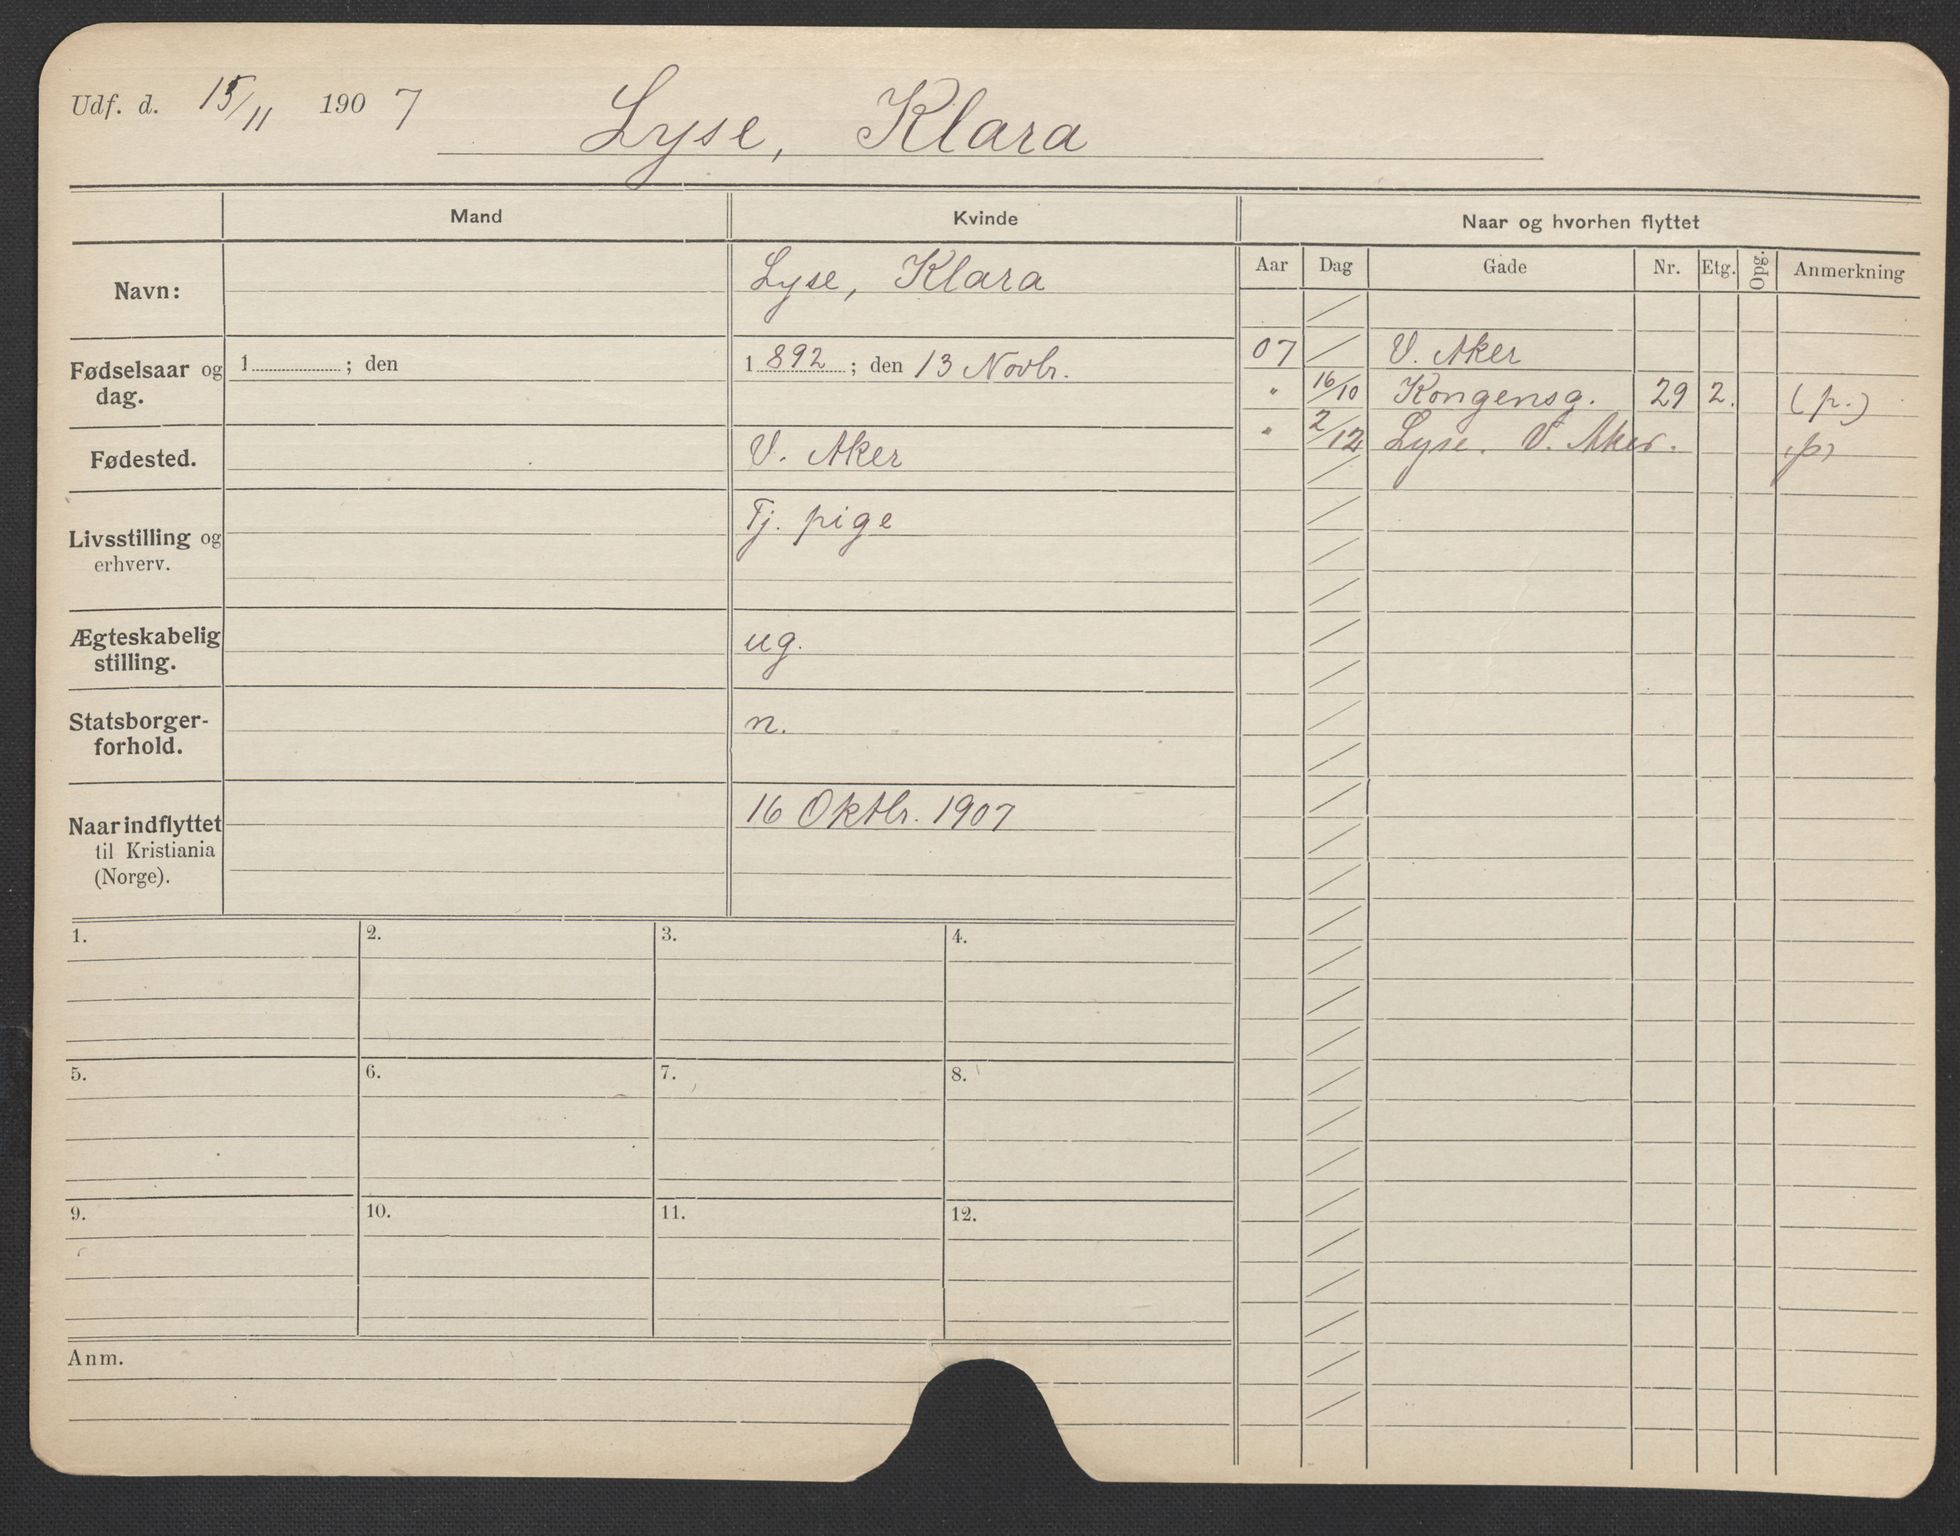 Udf. d. 15/11 1907 Lyse, Klara
Mand Kvinde Naar og hvorhen flyttet
Aar Dag Gade Nr. Etg. Opg. Anmerkning
Navn: Lyse, Klara
Fødselsaar og dag. 1 ; den 1892 ; den 13 Novbr.
Fødested. V. Aker
Livsstilling og erhverv. Tj. pige
Ægteskabelig stilling. ug.
Statsborgerforhold. n.
Naar indflyttet til Kristiania (Norge). 16 Oktbr. 1907
07 / V. Aker
" 16/10 Kongensg. 29 2. (p.)
" 2/12 Lyse. V. Aker. (p)
1. 2. 3. 4.
5. 6. 7. 8.
9. 10. 11. 12.
Anm.